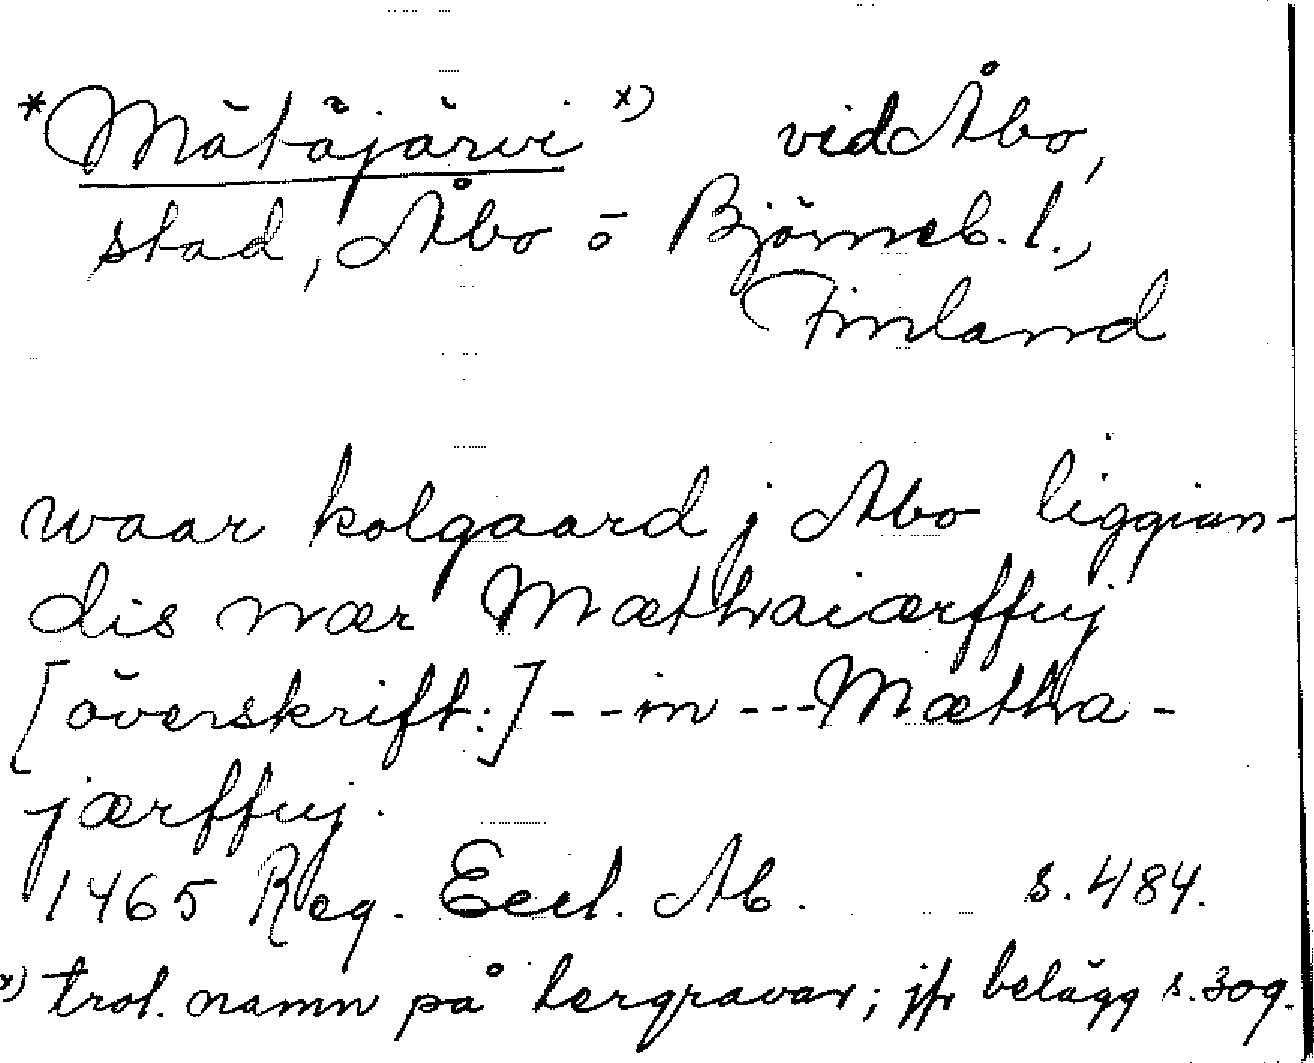 *Mätäjärvi x) vid Åbo,
stad, Åbo o Björneb. l.,
Finland
waar kolgaard j Abo liggian-
dis nær Mæthaiærffuj
[överskrift:] - - in - - - Mætha-
jærffuj.
1465 Reg. Eccl. Ab. s. 484.
x) trol. namn på lergravar; jfr belägg s. 309.